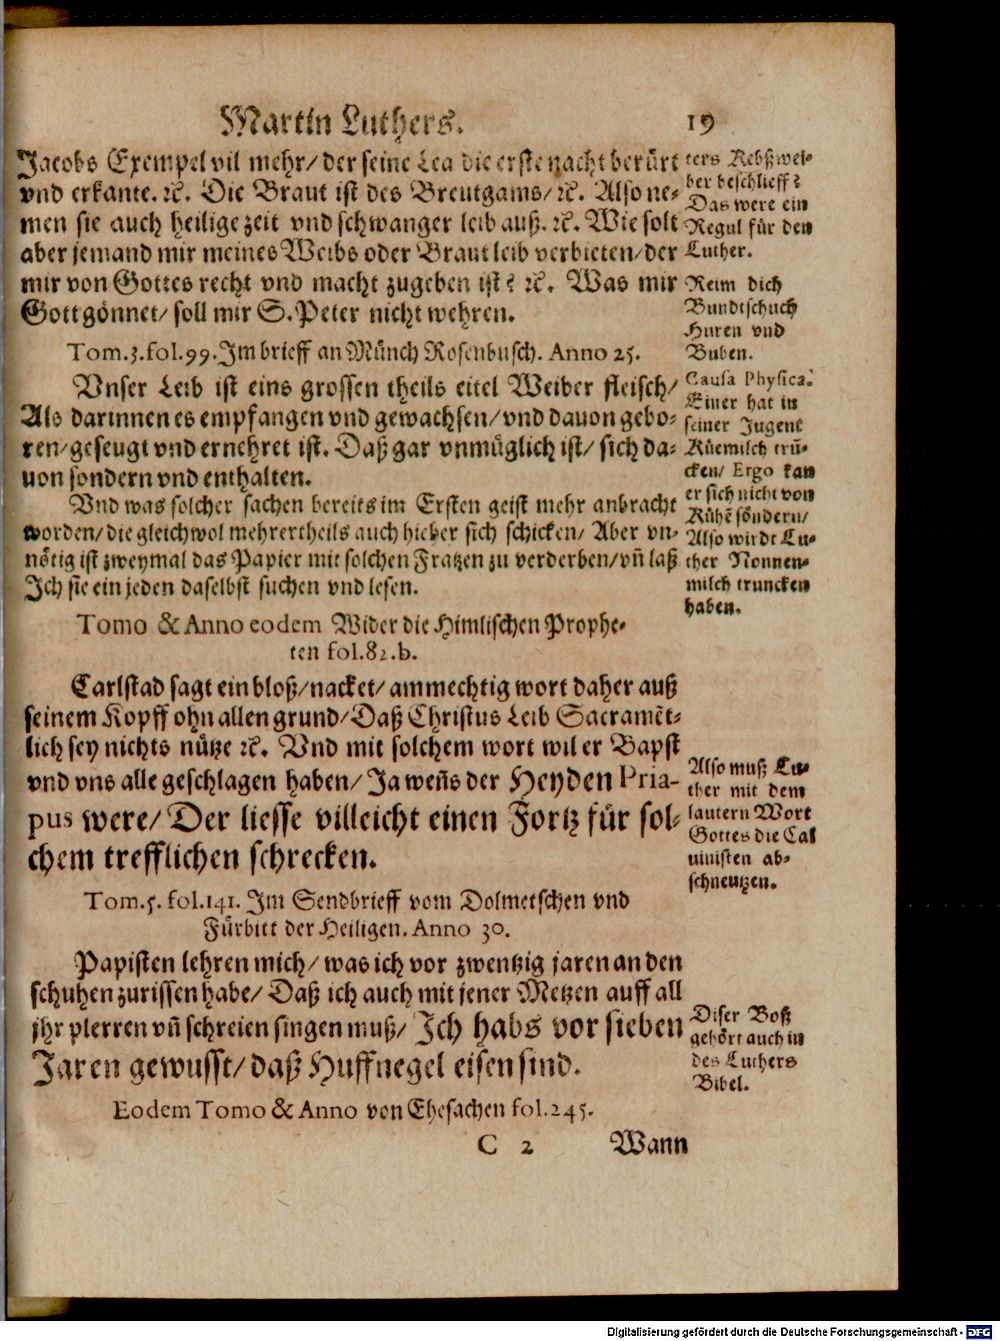 Martin Luthers. 19
Jacobs Exempel vil mehr/ der seine Lea die erste nacht berürt
vnd erkante. ꝛc. Die Braut ist des Breutgams/ ꝛc. Also ne-
men sie auch heilige zeit vnd schwanger leib auß. ꝛc. Wie solt
aber jemand mir meines Weibs oder Braut leib verbieten/ der
mir von Gottes recht vnd macht zugeben ist? ꝛc. Was mir
Gott gönnet/ soll mir S. Peter nicht wehren.
Tom.3.fol.99. Im brieff an Münch Rosenbusch. Anno 25.
Vnser Leib ist eins grossen theils eitel Weiber fleisch/
Als darinnen es empfangen vnd gewachsen/ vnd dauon gebo-
ren/ geseugt vnd ernehret ist. Daß gar vnmüglich ist/ sich da-
uon sondern vnd enthalten.
Vnd was solcher sachen bereits im Ersten geist mehr anbracht
worden/ die gleichwol mehrertheils auch hieher sich schicken/ Aber vn-
nötig ist zweymal das Papier mit solchen Fratzen zu verderben/ vñ laß
Ich sie ein jeden daselbst suchen vnd lesen.
Tomo & Anno eodem Wider die Himlischen Prophe-
ten fol.82.b.
Carlstad sagt ein bloß/ nacket/ ammechtig wort daher auß
seinem Kopff ohn allen grund/ Daß Christus Leib Sacramẽt-
lich sey nichts nütze ꝛc. Vnd mit solchem wort wil er Bapst
vnd vns alle geschlagen haben/ Ja weñs der Heyden Pria-
pus were/ Der liesse villeicht einen Fortz für sol-
chem trefflichen schrecken.
Tom.5. fol.141. Im Sendbrieff vom Dolmetschen vnd
Fürbitt der Heiligen. Anno 30.
Papisten lehren mich/ was ich vor zwentzig jaren an den
schuhen zurissen habe/ Daß ich auch mit jener Metzen auff all
jhr plerren vñ schreien singen muß/ Ich habs vor sieben
Jaren gewusst/ daß Huffnegel eisen sind.
Eodem Tomo & Anno von Ehesachen fol.245.
C 2 Wann
ters Kebßwei-
ber beschlieff?
Das were ein
Regul für den
Luther.
Reim dich
Bundtschuch
Huren vnd
Buben.
Causa Physica.
Einer hat in
seiner Jugent
Küemilch trũ-
cken/ Ergo kan
er sich nicht von
Kühẽ söndern/
Also wirdt Lu-
ther Nonnen-
milch truncken
haben.
Also muß Lu-
ther mit dem
lautern Wort
Gottes die Cal
uinisten ab-
schneutzen.
Diser Boß
gehört auch in
des Luthers
Bibel.
Digitalisierung gefördert durch die Deutsche Forschungsgemeinschaft - DFG